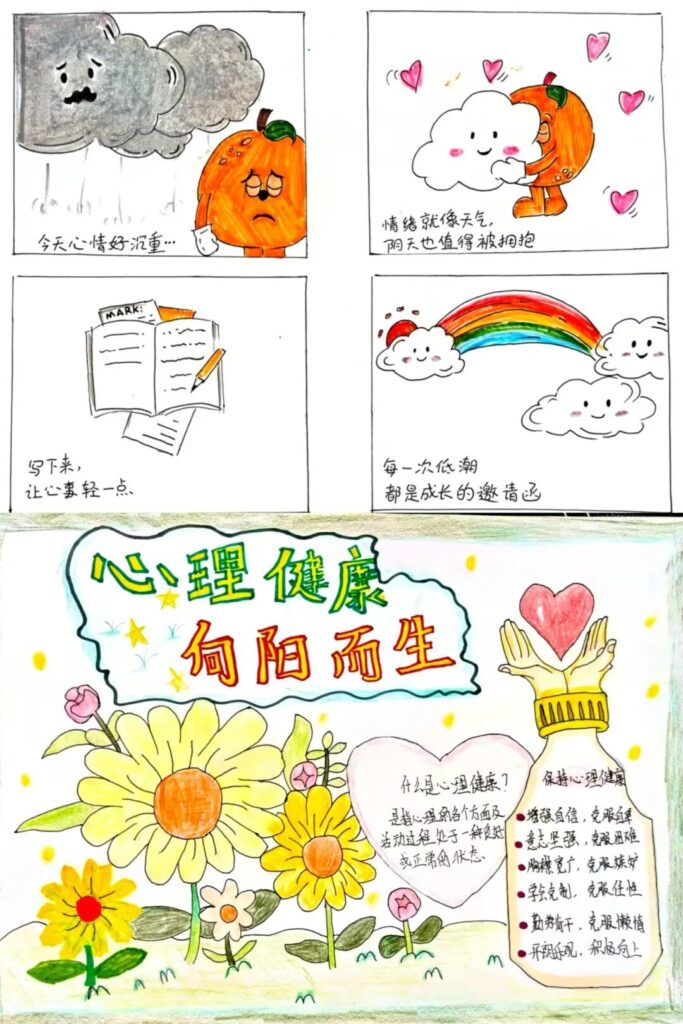 今天心情好沉重…
情绪就像天气,
阴天也值得被拥抱
MARK:
写下来,
让心事轻一点
每一次低潮
都是成长的邀请函
心理健康
向阳而生
什么是心理健康?
是指心理的各个方面及
活动过程处于一种良好
或正常的状态
保持心理健康
增强自信,克服自卑
意志坚强,克服困难
胸襟宽广,克服嫉妒
学会克制,克服任性
勤劳肯干,克服懒惰
开朗乐观,积极向上